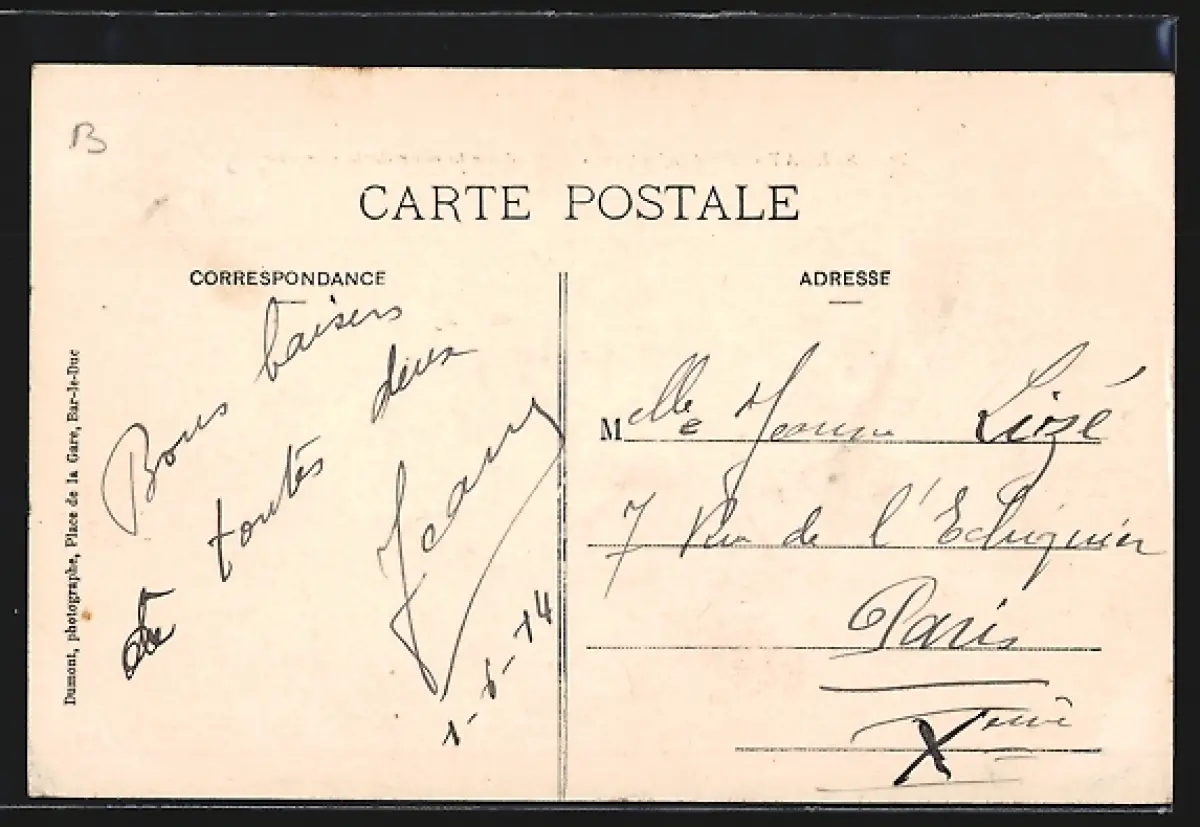 B
CARTE POSTALE
CORRESPONDANCE
Bons baisers
à toutes deux
Jeany
1-6-14
ADRESSE
Melle Jeanne Lizé
7 Rue de l'Echiquier
Paris
Xeme
Dumont, photographe, Place de la Gare, Bar-le-Duc